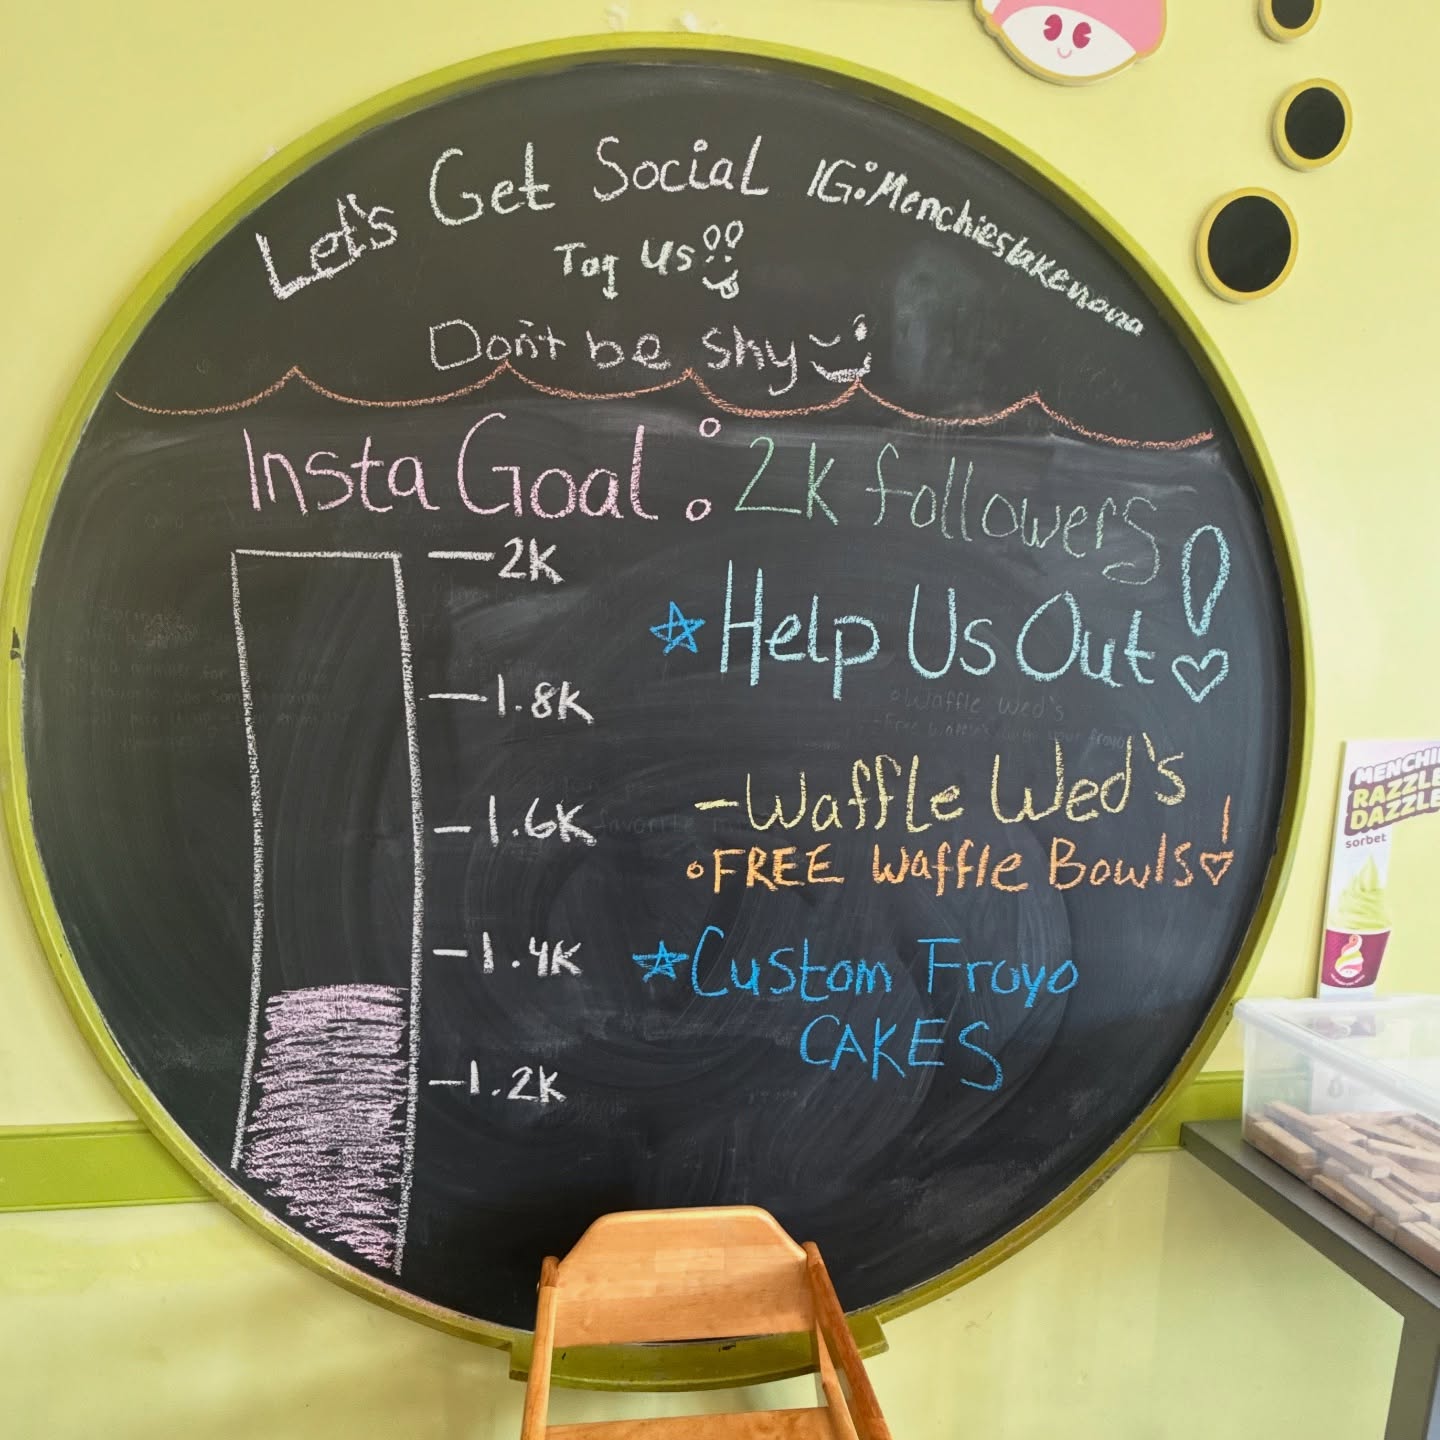 Let's Get Social IG: Menchieslakenona
Tag us!!
Don't be shy
Insta Goal: 2K followers
2K
Help Us Out!
1.8K
-Waffle Wed's
1.6K
FREE Waffle Bowls!
1.4K
Custom Froyo
CAKES
1.2K
MENCHI
RAZZLE
DAZZLE
sorbet